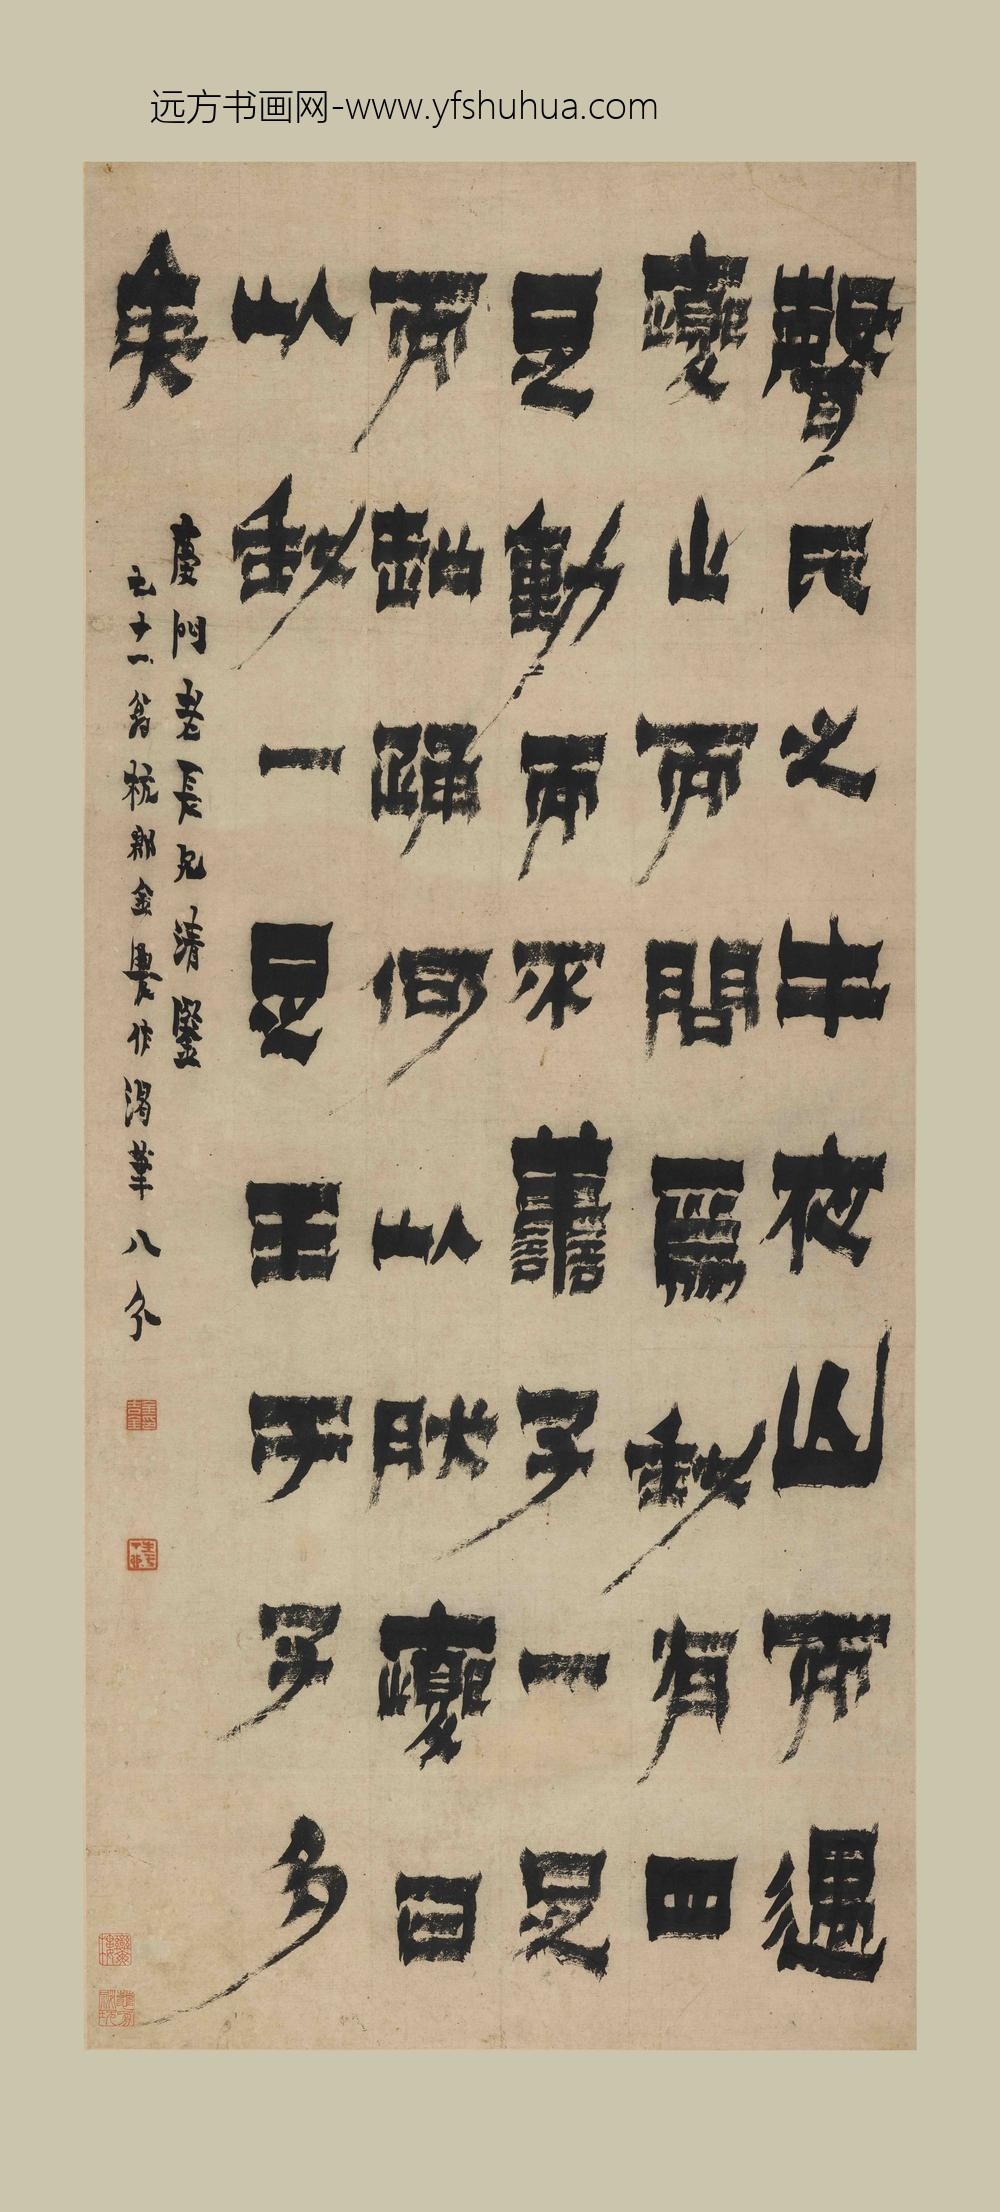 远方书画网-www.yfshuhua.com
聲氏之牛夜亡而遇
夔止而問焉我有四
足動而不善子一足
而超踊何以肰夔曰
以我一足王于子多
矣
門老長兄清鑒
七十一翁杭郡金農作渴筆八分